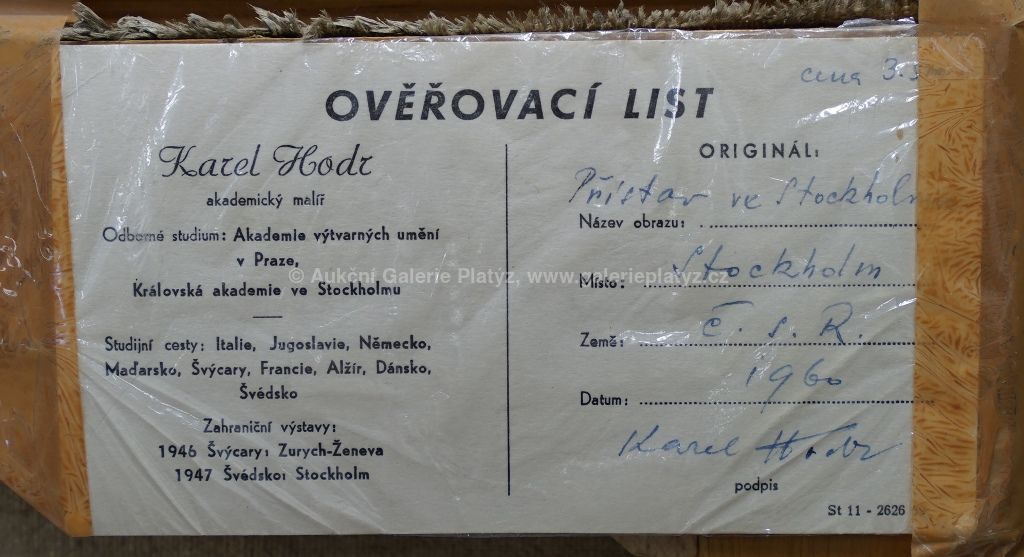 cena 3.
OVĚŘOVACÍ LIST
Karel Hodr
akademický malíř
Odborné studium: Akademie výtvarných umění
v Praze,
Královská akademie ve Stockholmu
Studijní cesty: Italie, Jugoslavie, Německo,
Maďarsko, Švýcary, Francie, Alžír, Dánsko,
Švédsko
Zahraniční výstavy:
1946 Švýcary: Zurych-Ženeva
1947 Švédsko: Stockholm
ORIGINÁL:
Přístav ve Stockholmu
Název obrazu:
Místo: Stockholm
Země: Č. s. R.
Datum: 1960
Karel Hodr
podpis
St 11 - 2626
© Aukční Galerie Platýz, www.galerieplatyz.cz